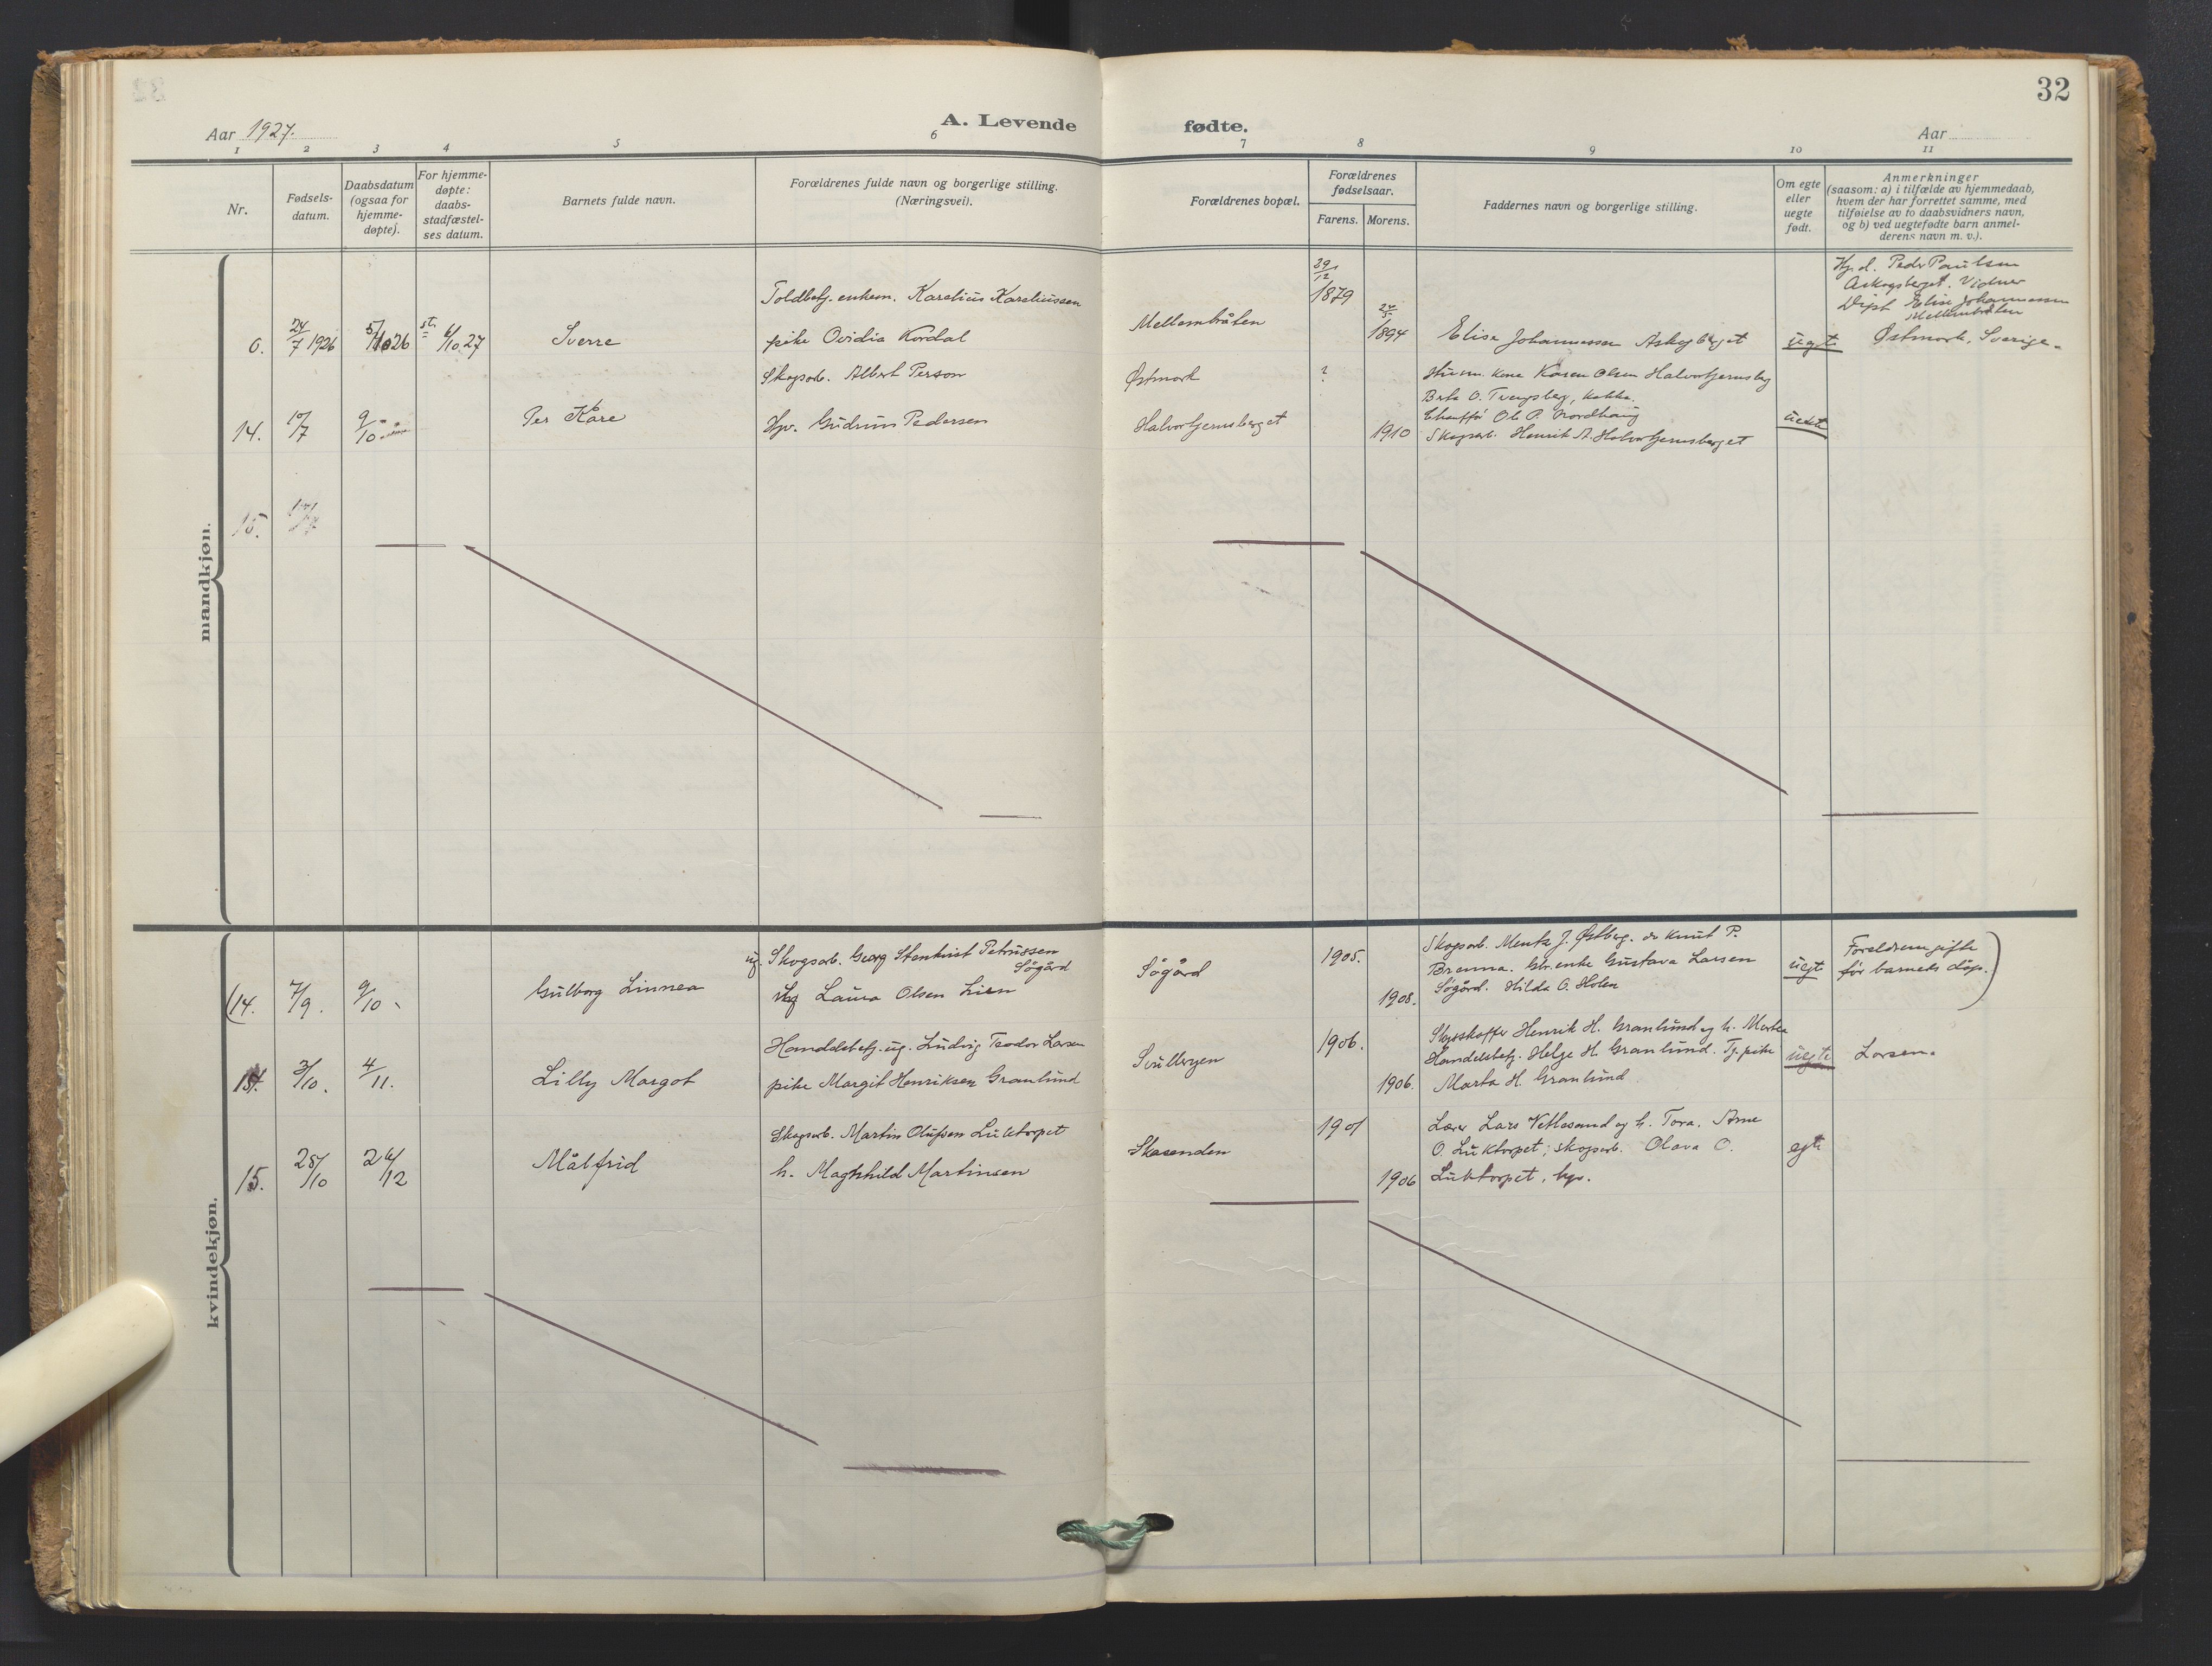 32
Aar 1927.
A. Levende fødte.
Aar
1 2 3 4 5 6 7 8 9 10 11
Nr.
Fødsels-
datum.
Daabsdatum
(ogsaa for
hjemme-
døpte).
For hjemme-
døpte:
daabs-
stadfæstel-
ses datum.
Barnets fulde navn.
Forældrenes fulde navn og borgerlige stilling.
(Næringsvei).
Forældrenes bopæl.
Forældrenes
fødselsaar.
Farens. Morens.
Faddernes navn og borgerlige stilling.
Om egte
eller
uegte
født.
Anmerkninger
(saasom: a) i tilfælde av hjemmedaab,
hvem der har forrettet samme, med
tilføielse av to daabsvidners navn,
og b) ved uegtefødte barn anmel-
derens navn m. v.).
mandkjøn.
0. 24/7 1926 5/10 26 st. 6/10 27
Sverre
Toldbetj. enkem. Karelius Kareliussen
pike Ovidia Kordal
Mellembråten
29/12
1879
1894
Elise Johannessen Askogberget
uegte
Hj. d. Peder Paulsen
Askogsberget. Vidner
Elise Johannessen
Mellembråten
Østmark, Sverige.
14. 10/7 9/10
Per Kåre
Skogsarb. Albert Person
Hjv. Gudrun Pedersen
Østmark
Halvortjernsberget
?
1910
Husm. kone Karen Olsen Halvortjernsberg
Berte O. Tvengsberg, kokke.
Chauffør Ole P. Nordhaug
Skogsarb. Henrik A. Halvortjernsberget
uegte
15. 17/7
kvindekjøn.
(14. 7/9. 9/10
Gulborg Linnea
ug. Skogsarb. Georg Stenkvist Petrussen
Søgård
Laura Olsen Lien
Søgård
1905.
1908.
Skogsarb. Mentz J. Østberg. do Knut P.
Brenna. Gbr. enke Gustava Larsen
Søgård. Hilda O. Holen
uegte
Foreldrene gifte
før barnets dåp.)
15. 3/10. 4/11.
Lilly Margot
Handelsbetj. ug. Ludvig Teodor Larsen
pike Margit Henriksen Granlund
Svullergen
1906.
1906.
Skysskaffer Henrik H. Granlund og h. Marthea
Handelsbetj. Helge H. Granlund. Tj. pike
Marta H. Granlund
uegte
Larsen.
15. 28/10 26/12
Målfrid
Skogsarb. Martin Olufsen Luktorpet
h. Maghild Martinsen
Skasenden
1901
1906
Lærer Lars Vetlesand og h. Tora. Arne
O. Luktorpet, skogsarb. Olava O.
Luktorpet, hjv.
egte